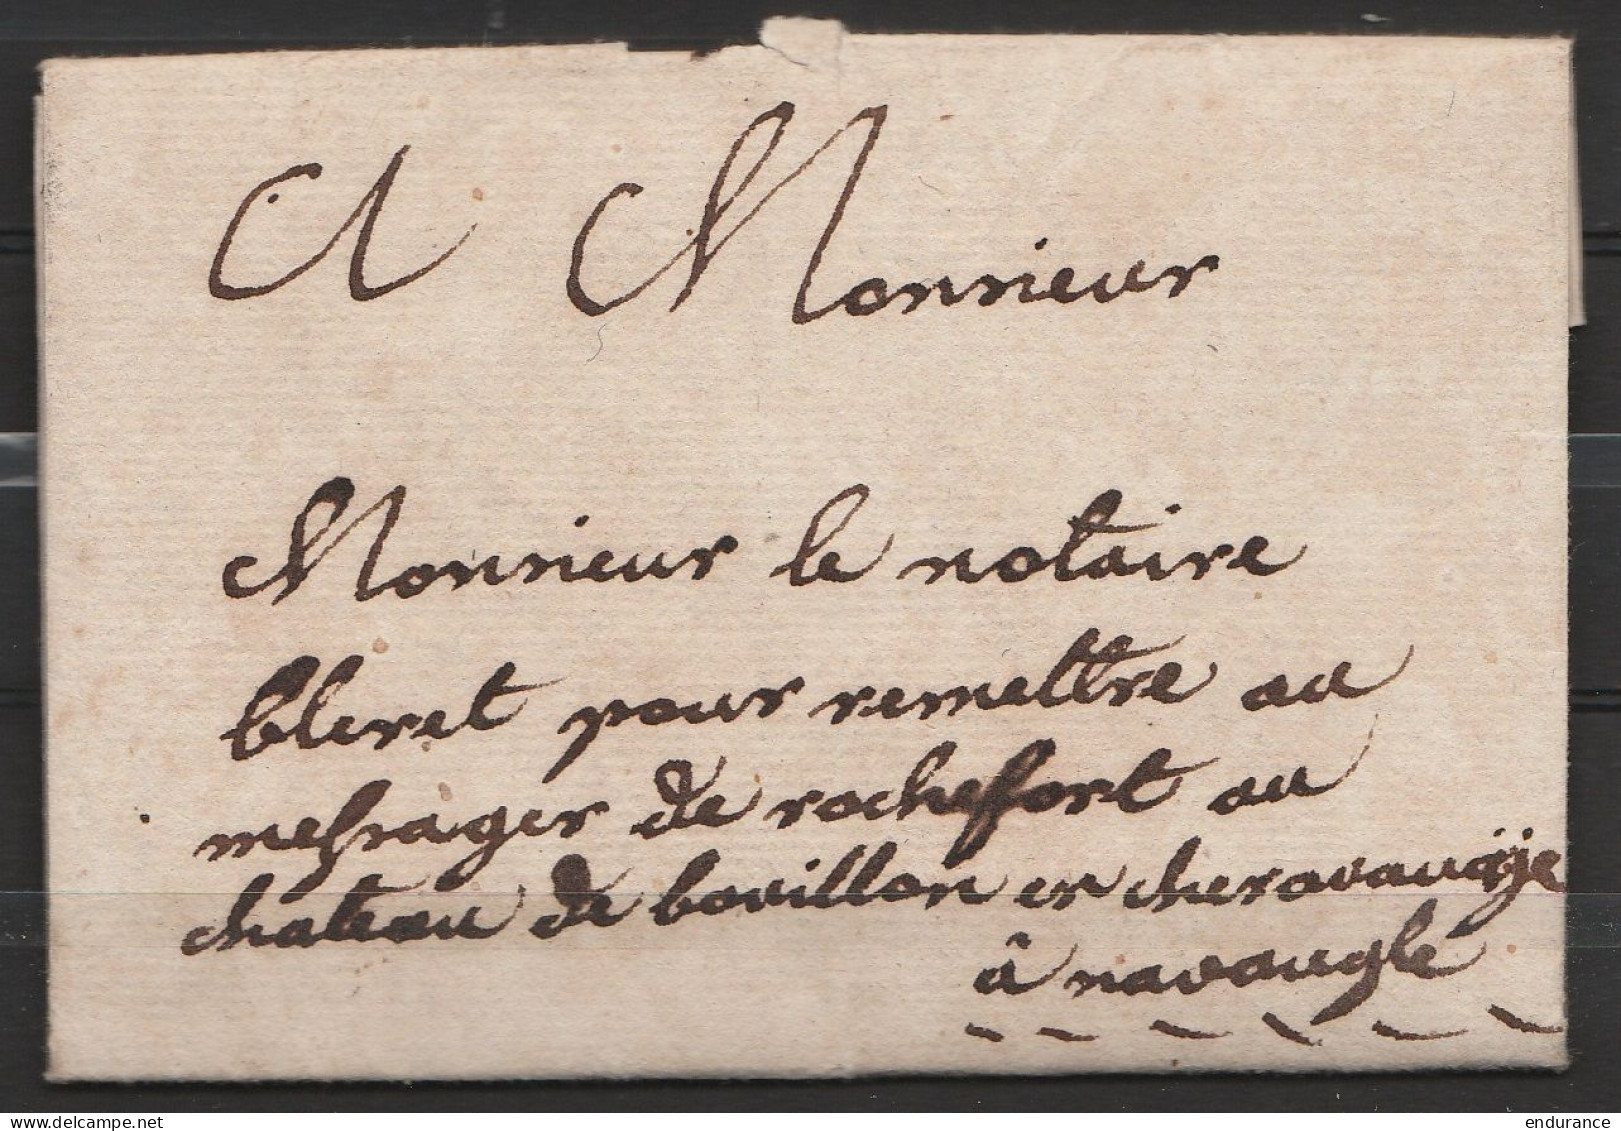 A Monsieur
Monsieur le notaire
bleret pour remettre au
messager de rochefort au
chateau de bouillon en
â navaugle
delcampe.net
endurance